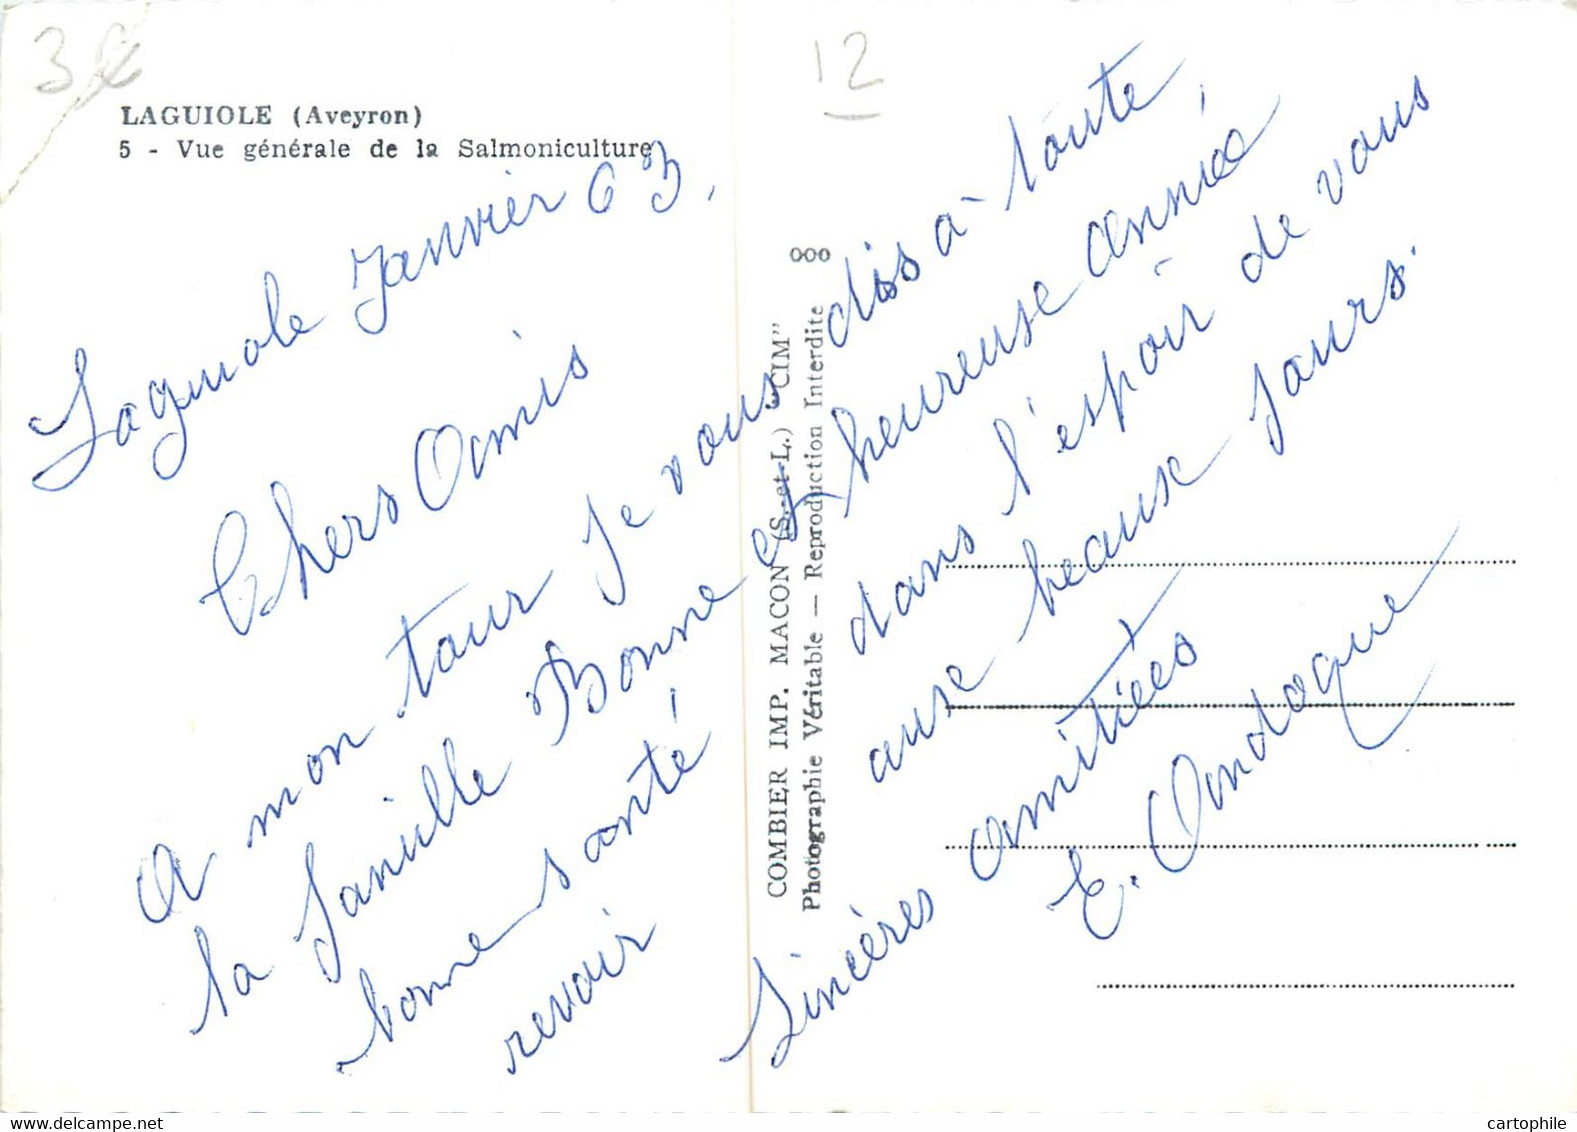 3€
12
LAGUIOLE (Aveyron)
5 - Vue générale de la Salmoniculture
Laguiole Janvier 63,
Chers Amis
A mon tour je vous dis à toute
la famille Bonne et heureuse année,
bonne santé dans l'espoir de vous
revoir aux beaux jours.
Sincères amitiées
E.
COMBIER IMP. MACON (S.-et-L.) "CIM"
Photographie Véritable — Reproduction Interdite
cartophile